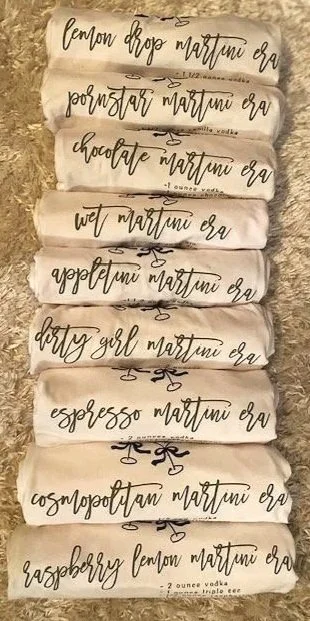 lemon drop martini era
- 1 1/2 ounce vodka
pornstar martini era
vanilla vodka
chocolate martini era
-1 ounce vodka
wet martini era
appletini martini era
dirty girl martini era
espresso martini era
- 2 ounces vodka
cosmopolitan martini era
raspberry lemon martini era
- 2 ounce vodka
- 1 ounce triple sec